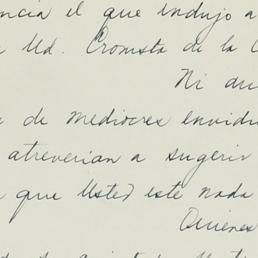 ncia el que indujo a
Ud. Cronista de la C
Ni du
de mediocres envidi
atreverian a sugerir
que Usted este nada
Quienes